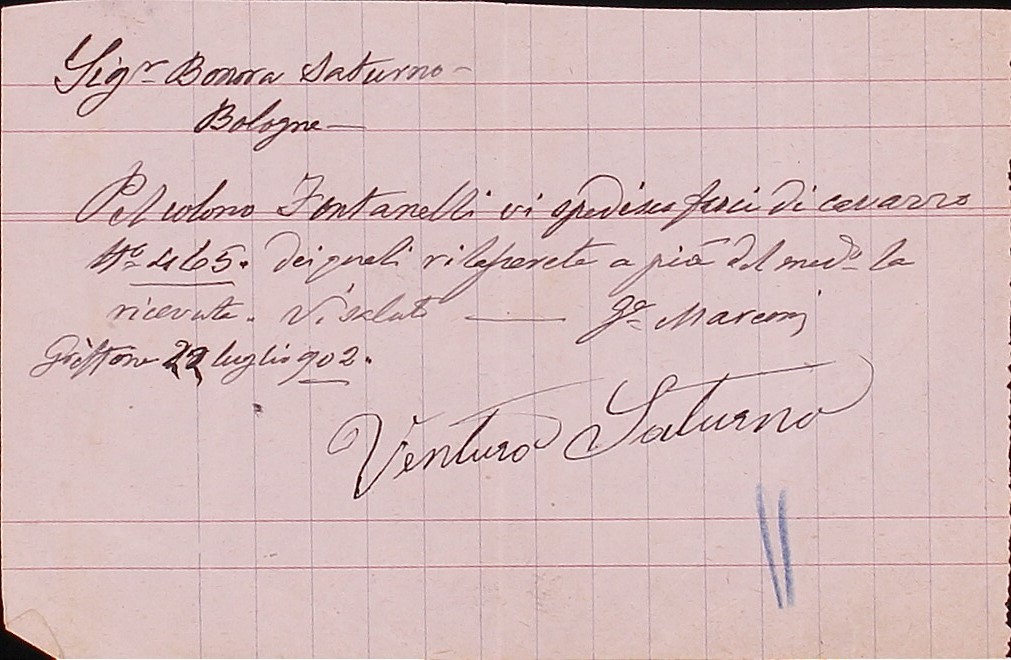 Sigr Bonora Saturno —
Bologna —
Pel colono Fontanelli vi spedisco fasci di
No 465. dei quali rilascerete a piè del medo la
ricevuta. Vi saluto — Gе Marconi
22 luglio 902.
Venturo Saturno